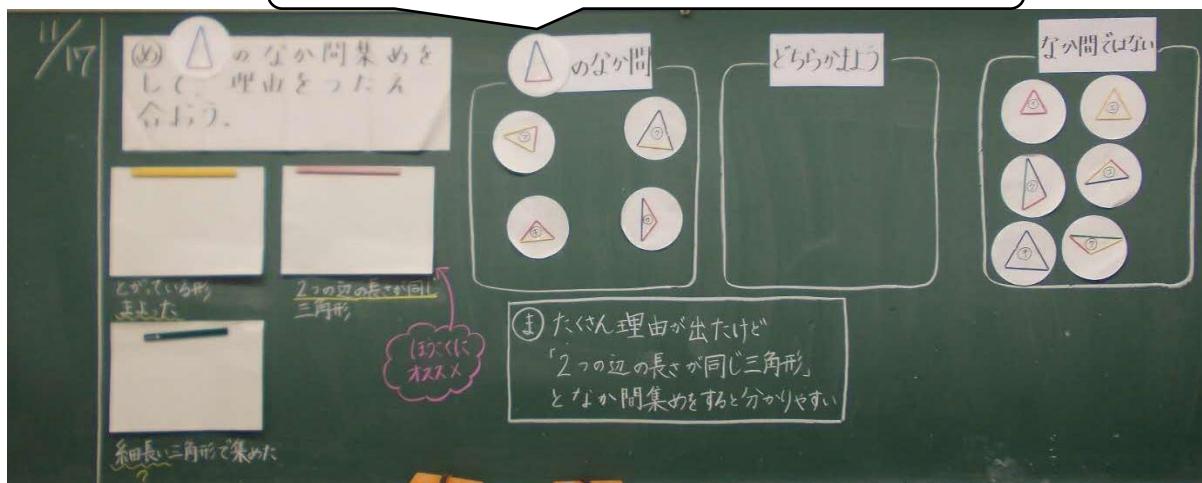 11/17
め のなか間集めを
して、理由をつたえ
合おう。
とがっている形
まよった
2つの辺の長さが同じ
三角形
ほうこくに
オススメ
細長い三角形で集めた
?
のなか間
どちらかまよう
なか間ではない
ま たくさん理由が出たけど
「2つの辺の長さが同じ三角形」
となか間集めをすると分かりやすい